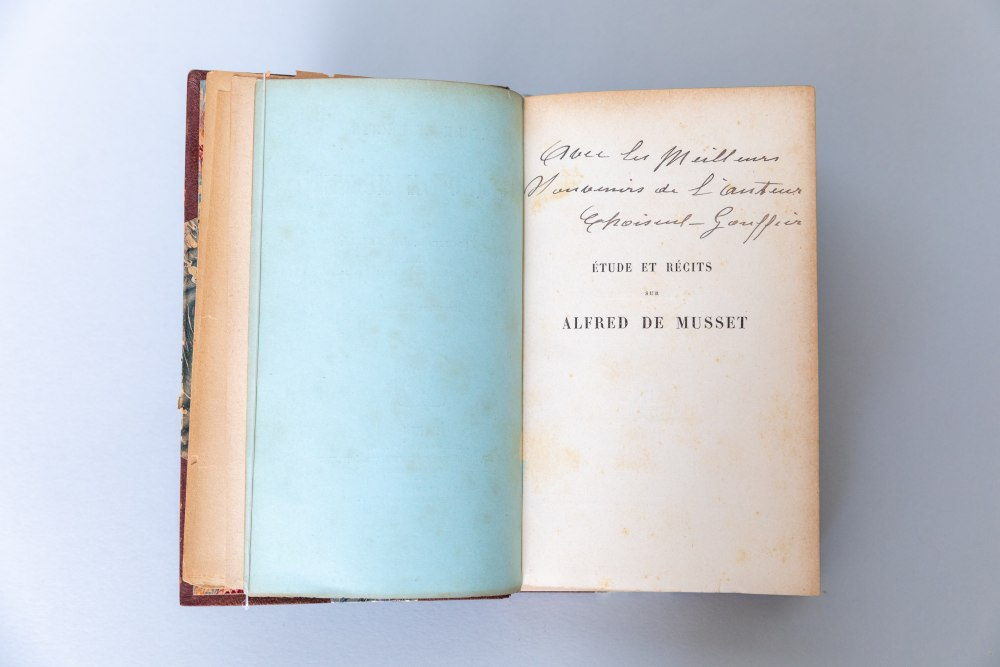 Avec les Meilleurs
Souvenirs de L'auteur
Choiseul-Gouffier
ÉTUDE ET RÉCITS
SUR
ALFRED DE MUSSET